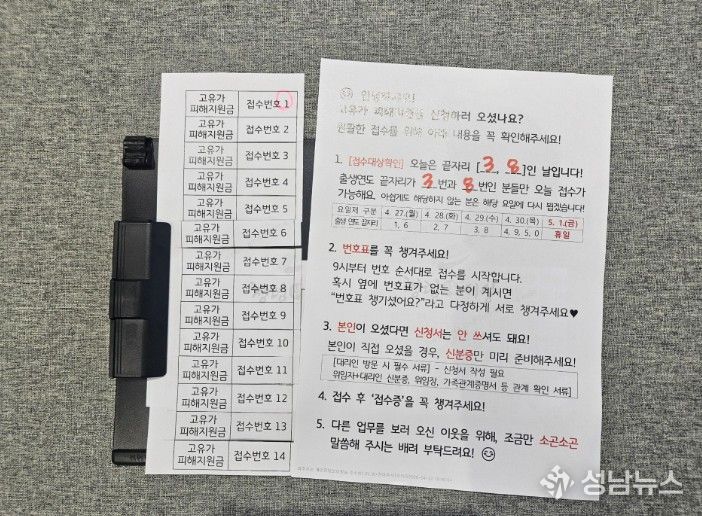 고유가 피해지원금 접수번호 1
고유가 피해지원금 접수번호 2
고유가 피해지원금 접수번호 3
고유가 피해지원금 접수번호 4
고유가 피해지원금 접수번호 5
고유가 피해지원금 접수번호 6
고유가 피해지원금 접수번호 7
고유가 피해지원금 접수번호 8
고유가 피해지원금 접수번호 9
고유가 피해지원금 접수번호 10
고유가 피해지원금 접수번호 11
고유가 피해지원금 접수번호 12
고유가 피해지원금 접수번호 13
고유가 피해지원금 접수번호 14
고유가 피해지원금을 신청하러 오셨나요?
원활한 접수를 위해 아래 내용을 꼭 확인해주세요!
1. [접수대상확인] 오늘은 끝자리 [3, 8]인 날입니다!
출생연도 끝자리가 3번과 8번인 분들만 오늘 접수가
가능해요. 아쉽게도 해당하지 않는 분은 해당 요일에 다시 뵙겠습니다!
요일제 구분 4. 27.(월) 4. 28.(화) 4. 29.(수) 4. 30.(목) 5. 1.(금)
출생 연도 끝자리 1, 6 2, 7 3, 8 4, 9, 5, 0 휴일
2. 번호표를 꼭 챙겨주세요!
9시부터 번호 순서대로 접수를 시작합니다.
혹시 옆에 번호표가 없는 분이 계시면
"번호표 챙기셨어요?"라고 다정하게 서로 챙겨주세요♥
3. 본인이 오셨다면 신청서는 안 쓰셔도 돼요!
본인이 직접 오셨을 경우, 신분증만 미리 준비해주세요!
[대리인 방문 시 필수 서류] - 신청서 작성 필요
위임자+대리인 신분증, 위임장, 가족관계증명서 등 관계 확인 서류]
4. 접수 후 '접수증'을 꼭 챙겨주세요!
5. 다른 업무를 보러 오신 이웃을 위해, 조금만 소곤소곤
말씀해 주시는 배려 부탁드려요! ☺
성남뉴스